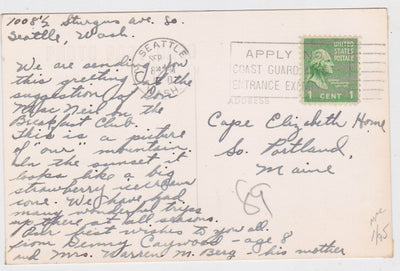 1008½ Sturgus Ave. So.
Seattle, Wash.
We are sending you
this greeting at the
suggestion of Don
Mac Neil on the
Breakfast Club.
This is a picture
of "our" mountain.
In the sunset it
looks like a big
strawberry icecream
cone. We have had
many wonderful trips
up there at all seasons.
Our best wishes to you all.
from Denny Caywood - age 8
and Mrs. Warren M. Berg - his mother
SEATTLE
WASH.
APPLY
COAST GUARD
ENTRANCE EX
ADDRESS
UNITED STATES
POSTAGE
1 CENT 1
Cape Elizabeth Home
So. Portland,
Maine
89